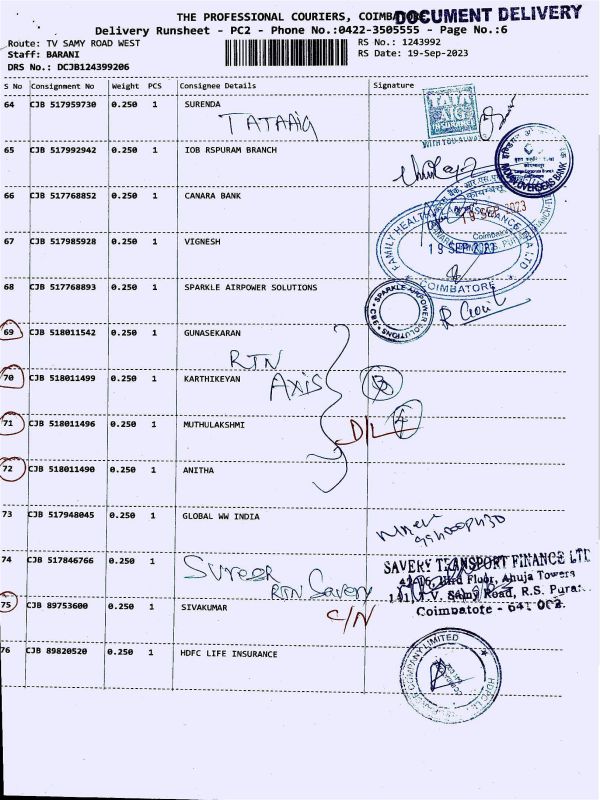 THE PROFESSIONAL COURIERS, COIMBATORE
DOCUMENT DELIVERY
Delivery Runsheet - PC2 - Phone No.:0422-3505555 - Page No.:6
Route: TV SAMY ROAD WEST
RS No.: 1243992
Staff: BARANI
RS Date: 19-Sep-2023
DRS No.: DCJB124399206
S No Consignment No Weight PCS Consignee Details Signature
64 CJB 517959730 0.250 1 SURENDA
TATAAIG
TATA AIG
WITH YOU ALWAYS
65 CJB 517992942 0.250 1 IOB RSPURAM BRANCH
INDIAN OVERSEAS BANK
66 CJB 517768852 0.250 1 CANARA BANK
19 SEP 2023
Coimbatore
67 CJB 517985928 0.250 1 VIGNESH
FAMILY HEALTH INSURANCE TPA LTD
19 SEP 2023
COIMBATORE
68 CJB 517768893 0.250 1 SPARKLE AIRPOWER SOLUTIONS
SPARKLE AIRPOWER SOLUTIONS • CBE •
69 CJB 518011542 0.250 1 GUNASEKARAN
RTN
70 CJB 518011499 0.250 1 KARTHIKEYAN
Axis
71 CJB 518011496 0.250 1 MUTHULAKSHMI
D/L 4
72 CJB 518011490 0.250 1 ANITHA
73 CJB 517948045 0.250 1 GLOBAL WW INDIA
74 CJB 517846766 0.250 1
RTN Savery
SAVERY TRANSPORT FINANCE LTD
Floor, Ahuja Towers
T.V. Samy Road, R.S. Puram
Coimbatore - 641 002.
75 CJB 89753600 0.250 1 SIVAKUMAR
C/N
76 CJB 89820520 0.250 1 HDFC LIFE INSURANCE
COMPANY LIMITED
HDFC